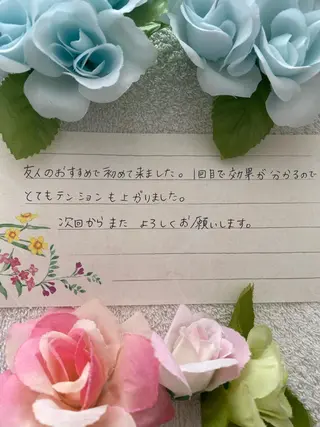 友人のおすすめで初めて来ました。1回目で効果が分かるので
とてもテンションも上がりました。
次回からまた よろしくお願いします。